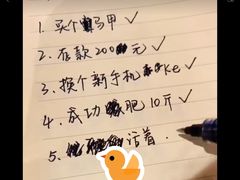 1. 买个马甲 ✓
2. 存款200元 ✓
3. 换个新手机 ke ✓
4. 成功肥10斤 ✓
5. 活着.